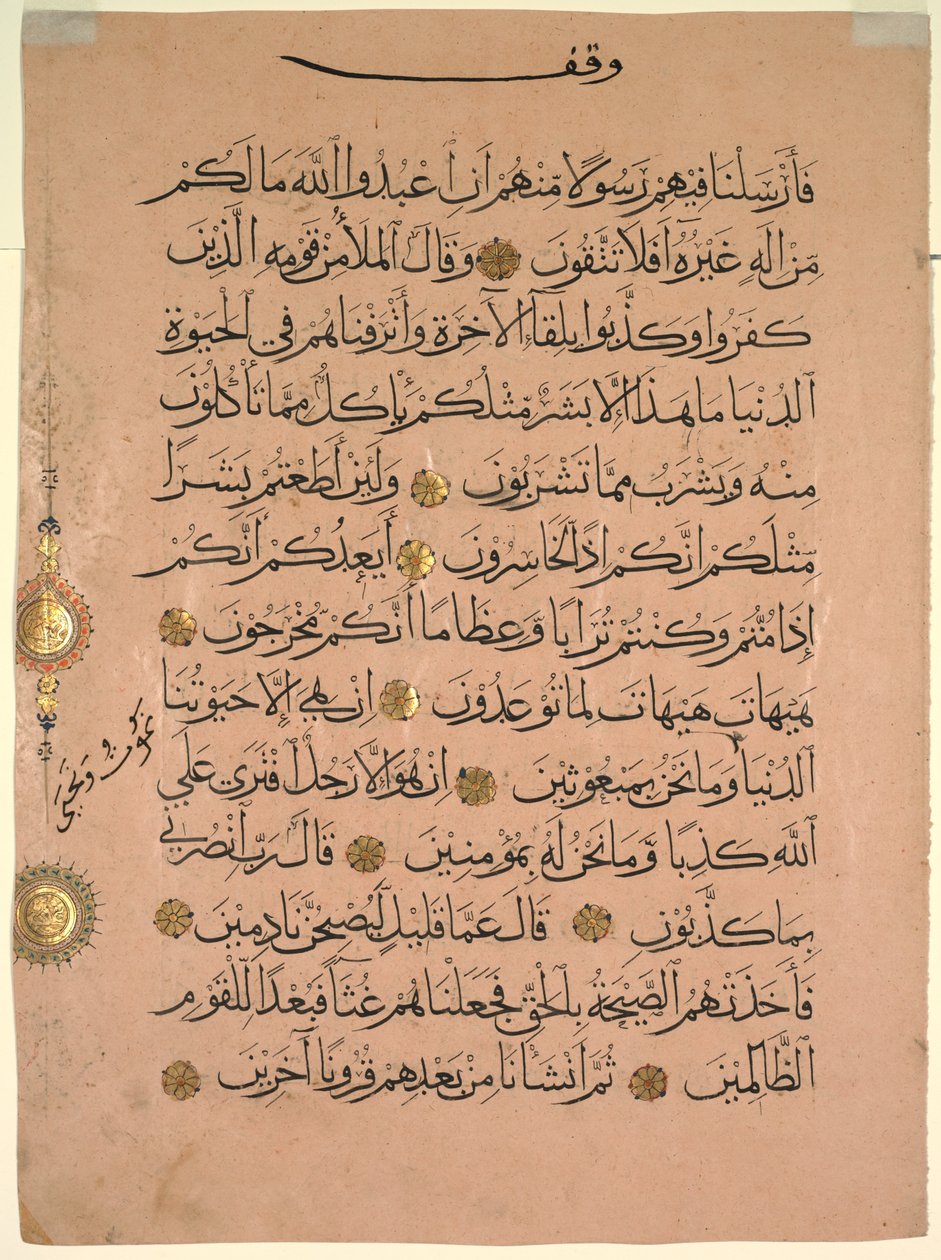 وقف
فَأَرْسَلْنَا فِيْهِمْ رَسُوْلًا مِّنْهُمْ اَنِ اعْبُدُوا اللَّهَ مَا لَكُمْ
مِّنْ اِلَهٍ غَيْرُهُ اَفَلَا تَتَّقُونَ وَقَالَ الْمَلَأُ مِنْ قَوْمِهِ الَّذِيْنَ
كَفَرُوا وَكَذَّبُوا بِلِقَآءِ الْآخِرَةِ وَأَتْرَفْنَاهُمْ فِي الْحَيَوةِ
الدُّنْيَا مَا هَذَا اِلَّا بَشَرٌ مِّثْلُكُمْ يَأْكُلُ مِمَّا تَأْكُلُوْنَ
مِنْهُ وَيَشْرَبُ مِمَّا تَشْرَبُوْنَ وَلَئِنْ أَطَعْتُمْ بَشَرًا
مِّثْلَكُمْ اِنَّكُمْ اِذًا لَّخَاسِرُوْنَ أَيَعِدُكُمْ أَنَّكُمْ
إِذَا مُتُّمْ وَكُنْتُمْ تُرَابًا وَّعِظَامًا أَنَّكُمْ مُّخْرَجُوْنَ
هَيْهَاتَ هَيْهَاتَ لِمَا تُوْعَدُوْنَ اِنْ هِيَ إِلَّا حَيَوتُنَا
الدُّنْيَا وَمَا نَحْنُ بِمَبْعُوْثِيْنَ اِنْ هُوَ اِلَّا رَجُلٌ افْتَرَى عَلَي
نموت ونحيى
اللَّهِ كَذِبًا وَّمَا نَحْنُ لَهُ بِمُؤْمِنِيْنَ قَالَ رَبِّ انْصُرْنِي
بِمَا كَذَّبُوْنِ قَالَ عَمَّا قَلِيْلٍ لَّيُصْبِحُنَّ نَادِمِيْنَ
فَأَخَذَتْهُمُ الصَّيْحَةُ بِالْحَقِّ فَجَعَلْنَاهُمْ غُثَآءً فَبُعْدًا لِّلْقَوْمِ
الظَّالِمِيْنَ ثُمَّ اَنْشَأْنَا مِنْ بَعْدِهِمْ قُرُونًا آخَرِيْنَ